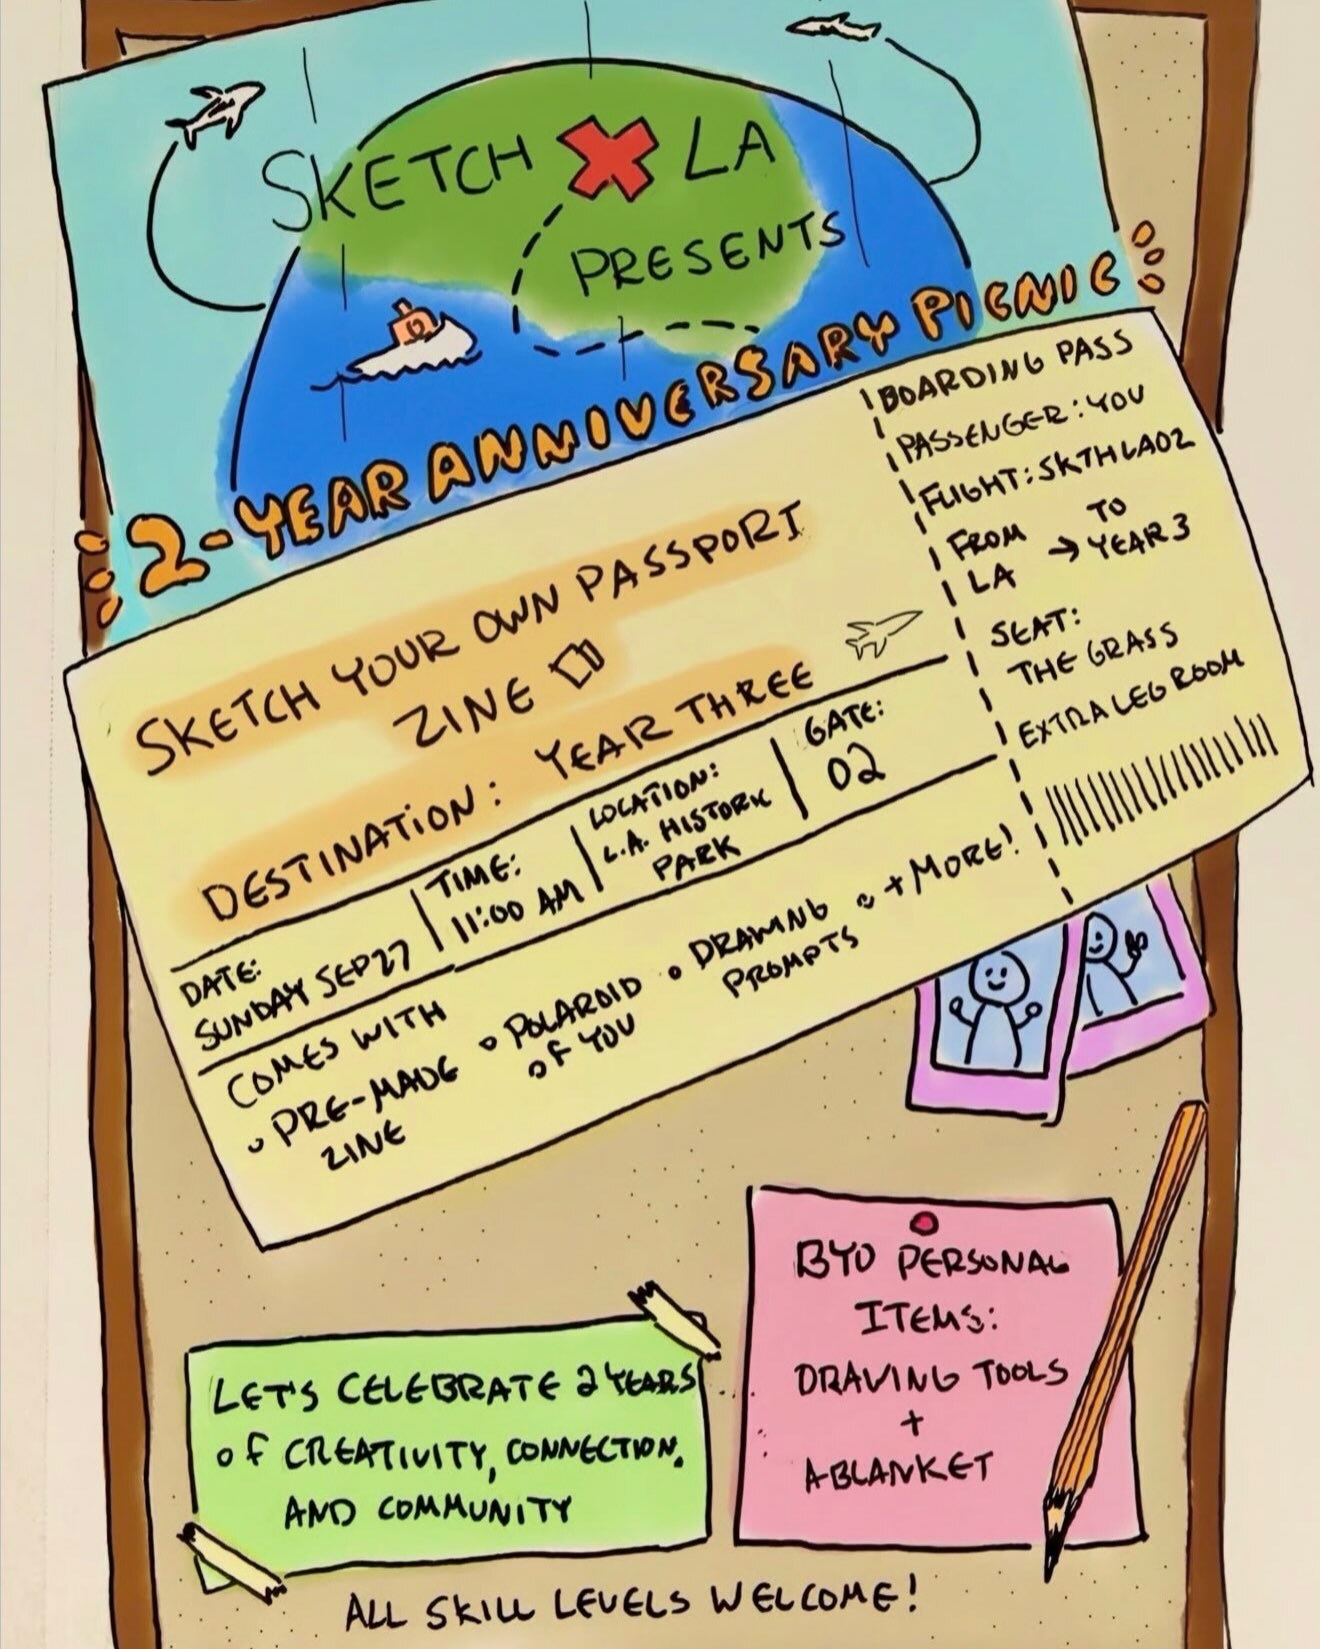 SKETCH X LA
PRESENTS
2-YEAR ANNIVERSARY PICNIC
SKETCH YOUR OWN PASSPORT
ZINE
DESTINATION: YEAR THREE
DATE:
SUNDAY SEP 27
TIME:
11:00 AM
LOCATION:
L.A. HISTORIC
PARK
GATE:
02
COMES WITH
• PRE-MADE
ZINE
• POLAROID
OF YOU
• DRAWING
PROMPTS
• + MORE!
BOARDING PASS
PASSENGER: YOU
FLIGHT: SKTHLA02
FROM
LA
→
TO
YEAR 3
SEAT:
THE GRASS
EXTRA LEG ROOM
BYO PERSONAL
ITEMS:
DRAWING TOOLS
+
A BLANKET
LET'S CELEBRATE 2 YEARS
OF CREATIVITY, CONNECTION,
AND COMMUNITY
ALL SKILL LEVELS WELCOME!